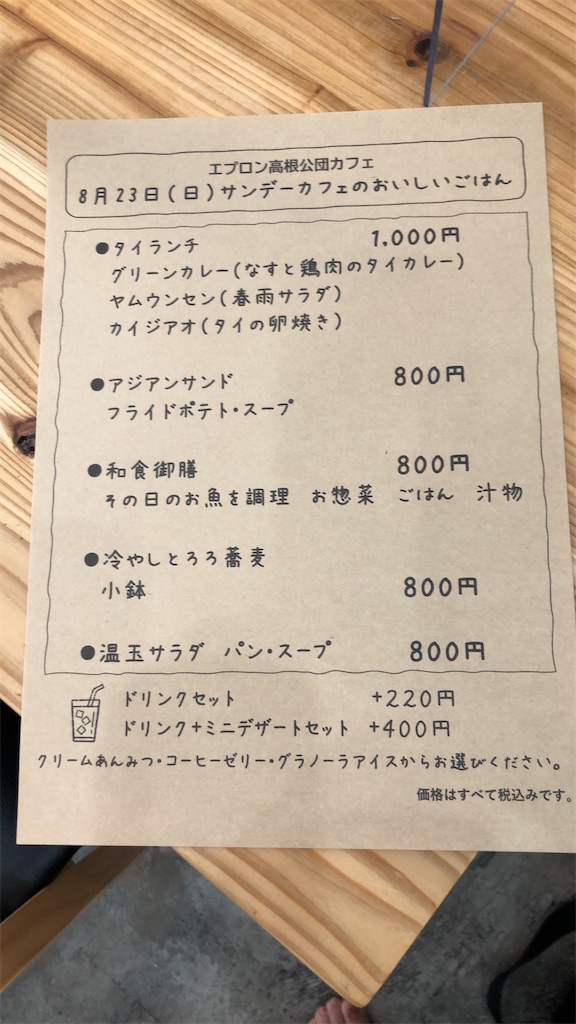 エプロン高根公団カフェ
8月23日(日)サンデーカフェのおいしいごはん
●タイランチ 1.000円
グリーンカレー(なすと鶏肉のタイカレー)
ヤムウンセン(春雨サラダ)
カイジアオ(タイの卵焼き)
●アジアンサンド 800円
フライドポテト・スープ
●和食御膳 800円
その日のお魚を調理 お惣菜 ごはん 汁物
●冷やしとろろ蕎麦
小鉢 800円
●温玉サラダ パン・スープ 800円
ドリンクセット +220円
ドリンク+ミニデザートセット +400円
クリームあんみつ・コーヒーゼリー・グラノーラアイスからお選びください。
価格はすべて税込みです。